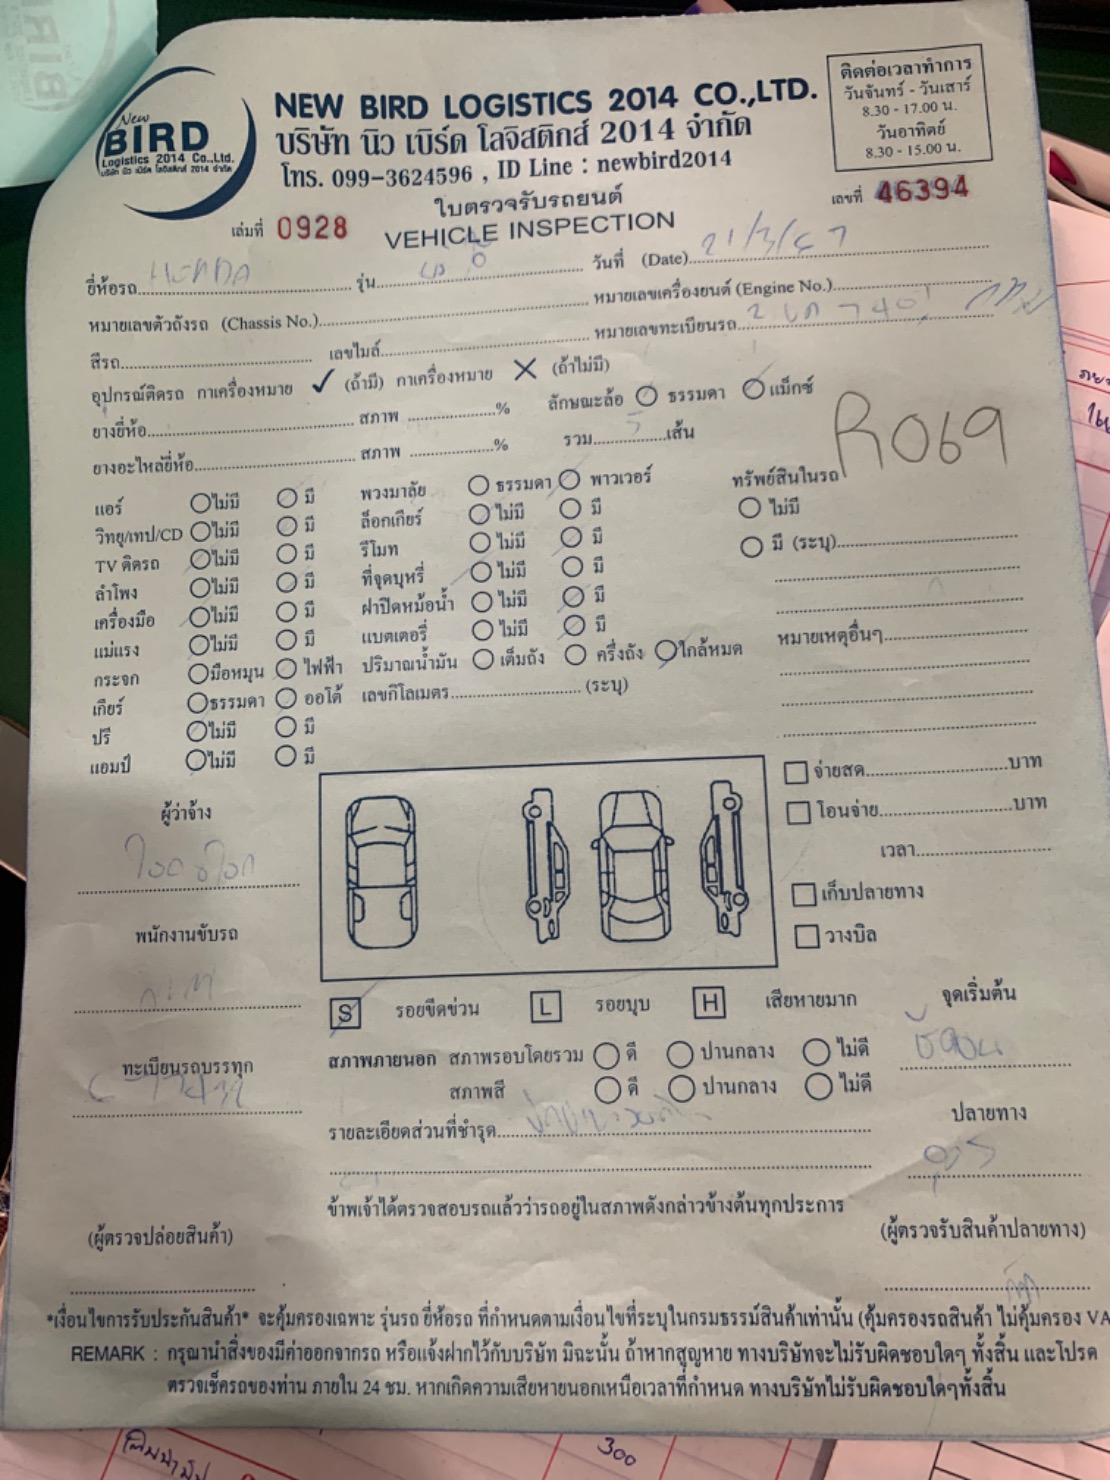 New
BIRD
Logistics 2014 Co.,Ltd.
บริษัท นิว เบิร์ด โลจิสติกส์ 2014 จำกัด
NEW BIRD LOGISTICS 2014 CO.,LTD.
บริษัท นิว เบิร์ด โลจิสติกส์ 2014 จำกัด
โทร. 099-3624596 , ID Line : newbird2014
ติดต่อเวลาทำการ
วันจันทร์ - วันเสาร์
8.30 - 17.00 น.
วันอาทิตย์
8.30 - 15.00 น.
ใบตรวจรับรถยนต์
เล่มที่ 0928 VEHICLE INSPECTION เลขที่ 46394
ยี่ห้อรถ HONDA รุ่น วันที่ (Date) 21/3/67
หมายเลขตัวถังรถ (Chassis No.) หมายเลขเครื่องยนต์ (Engine No.)
สีรถ เลขไมล์ หมายเลขทะเบียนรถ
อุปกรณ์ติดรถ กาเครื่องหมาย ✓ (ถ้ามี) กาเครื่องหมาย ✕ (ถ้าไม่มี)
ยางยี่ห้อ สภาพ % ลักษณะล้อ ธรรมดา แม็กซ์
ยางอะไหล่ยี่ห้อ สภาพ % รวม 5 เส้น
R069
แอร์ ไม่มี มี พวงมาลัย ธรรมดา พาวเวอร์ ทรัพย์สินในรถ
วิทยุ/เทป/CD ไม่มี มี ล็อกเกียร์ ไม่มี มี ไม่มี
TV ติดรถ ไม่มี มี รีโมท ไม่มี มี มี (ระบุ)
ลำโพง ไม่มี มี ที่จุดบุหรี่ ไม่มี มี
เครื่องมือ ไม่มี มี ฝาปิดหม้อน้ำ ไม่มี มี
แม่แรง ไม่มี มี แบตเตอรี่ ไม่มี มี หมายเหตุอื่นๆ
กระจก มือหมุน ไฟฟ้า ปริมาณน้ำมัน เต็มถัง ครึ่งถัง ใกล้หมด
เกียร์ ธรรมดา ออโต้ เลขกิโลเมตร (ระบุ)
ปรี ไม่มี มี
แอมป์ ไม่มี มี
จ่ายสด บาท
ผู้ว่าจ้าง โอนจ่าย บาท
เวลา
เก็บปลายทาง
พนักงานขับรถ วางบิล
S รอยขีดข่วน L รอยบุบ H เสียหายมาก จุดเริ่มต้น
ทะเบียนรถบรรทุก สภาพภายนอก สภาพรอบโดยรวม ดี ปานกลาง ไม่ดี
สภาพสี ดี ปานกลาง ไม่ดี
รายละเอียดส่วนที่ชำรุด ปลายทาง
ข้าพเจ้าได้ตรวจสอบรถแล้วว่ารถอยู่ในสภาพดังกล่าวข้างต้นทุกประการ
(ผู้ตรวจปล่อยสินค้า) (ผู้ตรวจรับสินค้าปลายทาง)
*เงื่อนไขการรับประกันสินค้า* จะคุ้มครองเฉพาะ รุ่นรถ ยี่ห้อรถ ที่กำหนดตามเงื่อนไขที่ระบุในกรมธรรม์สินค้าเท่านั้น (คุ้มครองรถสินค้า ไม่คุ้มครอง VA
REMARK : กรุณานำสิ่งของมีค่าออกจากรถ หรือแจ้งฝากไว้กับบริษัท มิฉะนั้น ถ้าหากสูญหาย ทางบริษัทจะไม่รับผิดชอบใดๆ ทั้งสิ้น และโปรด
ตรวจเช็ครถของท่าน ภายใน 24 ชม. หากเกิดความเสียหายนอกเหนือเวลาที่กำหนด ทางบริษัทไม่รับผิดชอบใดๆทั้งสิ้น
300